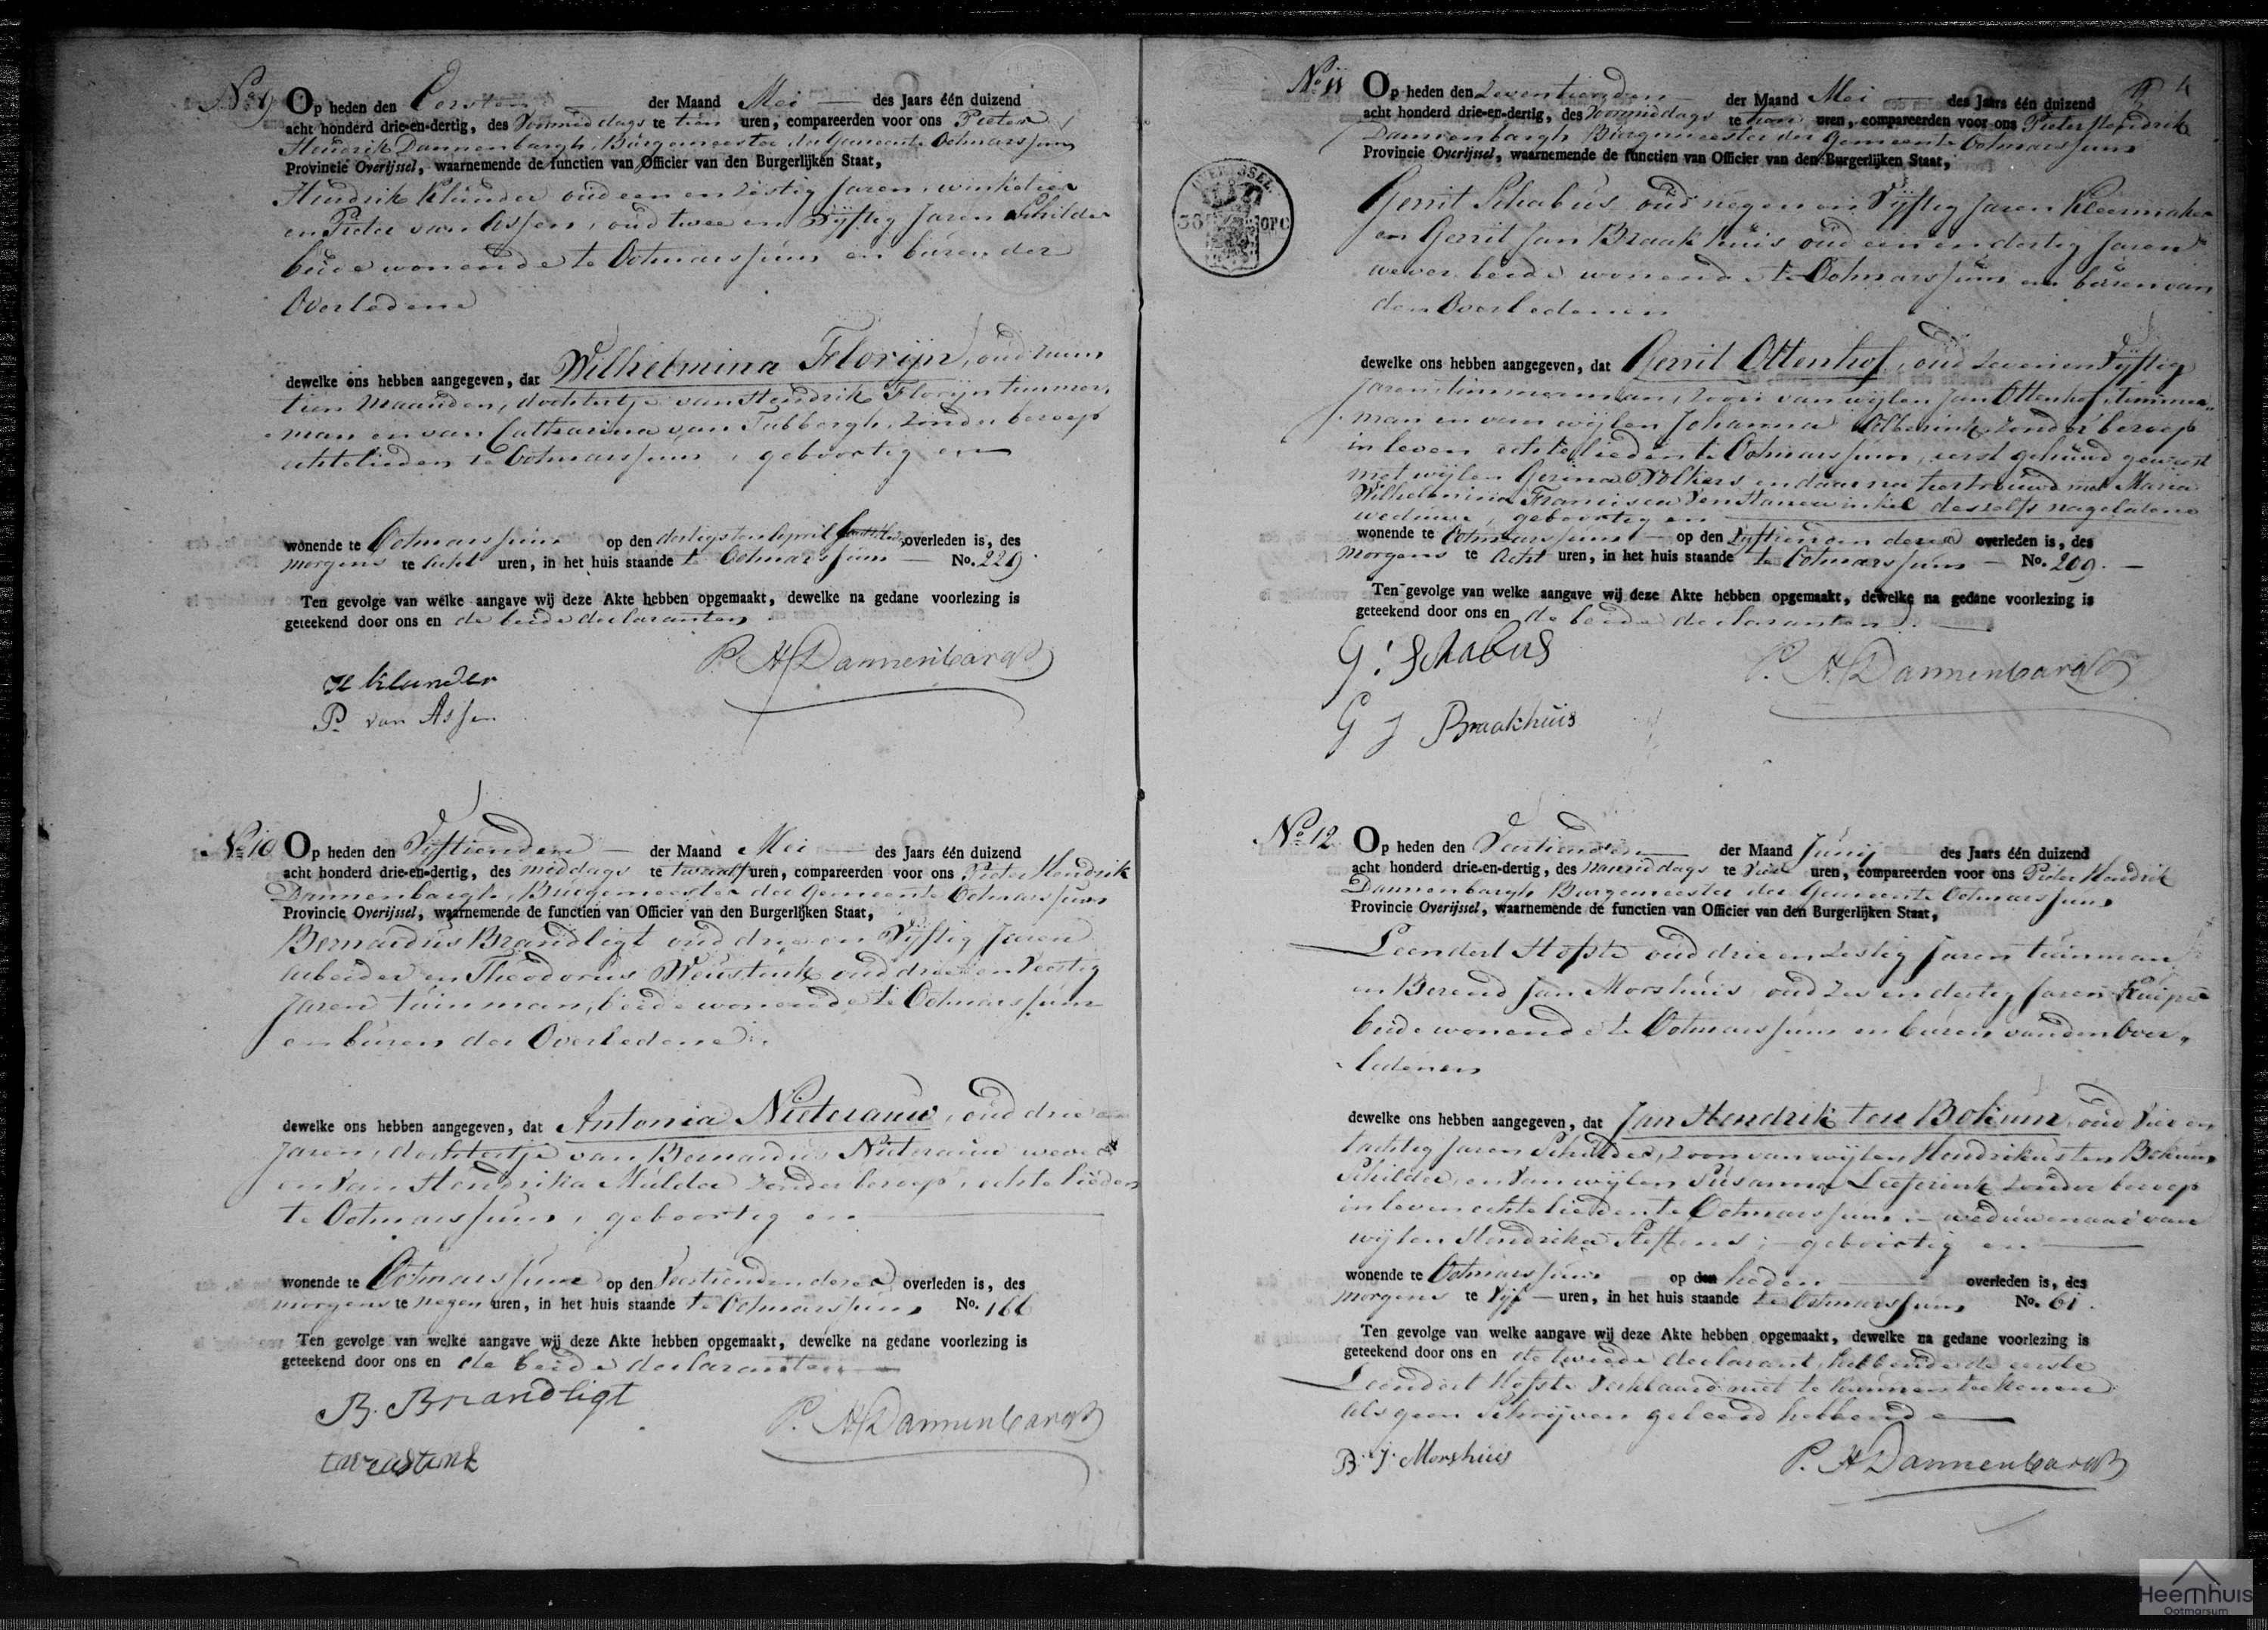 No 9 Op heden den Eersten der Maand Mei des Jaars één duizend
acht honderd drie-en-dertig, des Voormiddags te tien uren, compareerden voor ons Pieter
Hendrik Dannenbargh, Burgemeester der Gemeente Ootmarssum
Provincie Overijssel, waarnemende de functien van Officier van den Burgerlijken Staat,
Hendrik Klunder oud een en zestig Jaren, winkelier
en Pieter van Assen, oud twee en Vijftig Jaren Schilder
beide wonende te Ootmarssum en buren der
Overledene
dewelke ons hebben aangegeven, dat Wilhelmina Florijn, oud ruim
tien Maanden, dochtertje van Hendrik Florijn timmer
man en van Catharina van Tubbergh, zonder beroep
echtelieden te Ootmarssum, geboortig en
wonende te Ootmarssum op den dertigsten April overleden is, des
morgens te acht uren, in het huis staande te Ootmarssum No. 229
Ten gevolge van welke aangave wij deze Akte hebben opgemaakt, dewelke na gedane voorlezing is
geteekend door ons en de beide declaranten
P. H. Dannenbargh
H Klunder
P. van Assen
No 10 Op heden den Vijftienden der Maand Mei des Jaars één duizend
acht honderd drie-en-dertig, des middags te twaalf uren, compareerden voor ons Pieter Hendrik
Dannenbargh, Burgemeester der Gemeente Ootmarssum
Provincie Overijssel, waarnemende de functien van Officier van den Burgerlijken Staat,
Bernardus Brandligt oud drie en Vijftig Jaren
arbeider en Theodorus Weustink oud drie en Veertig
Jaren tuinman, beide wonende te Ootmarssum
en buren der Overledene
dewelke ons hebben aangegeven, dat Antonia Nieterauw, oud drie
Jaren, dochtertje van Bernardus Nieterauw wever
en van Hendrika Mulder zonder beroep, echtelieden
te Ootmarssum, geboortig en
wonende te Ootmarssum op den Veertienden dezer overleden is, des
morgens te negen uren, in het huis staande te Ootmarssum No. 166
Ten gevolge van welke aangave wij deze Akte hebben opgemaakt, dewelke na gedane voorlezing is
geteekend door ons en de beide declaranten
B. Brandligt
P. H. Dannenbargh
No 11 Op heden den Zeventienden der Maand Mei des Jaars één duizend
acht honderd drie-en-dertig, des Voormiddags te uren, compareerden voor ons Pieter Hendrik
Dannenbargh Burgemeester der Gemeente Ootmarssum
Provincie Overijssel, waarnemende de functien van Officier van den Burgerlijken Staat,
OVERIJSSEL
Gerrit Schabus oud negen en Vijftig Jaren Kleermaker
en Gerrit Jan Braakhuis oud een en dertig Jaren
wever beide wonende te Ootmarssum en buren van
den Overledenen
dewelke ons hebben aangegeven, dat Gerrit Ottenhof, oud Zeven en Vijftig
Jaren, timmerman, zoon van wijlen Jan Ottenhof, timmer
man en van wijlen Johanna zonder beroep
in leven echtelieden te Ootmarssum, eerst gehuwd geweest
met wijlen Gerina Wolters en daarna hertrouwd met Maria
Wilhelmina Francisca deszelfs nagelatene
weduwe, geboortig en
wonende te Ootmarssum op den Vijftienden dezer overleden is, des
morgens te Acht uren, in het huis staande te Ootmarssum No. 209.
Ten gevolge van welke aangave wij deze Akte hebben opgemaakt, dewelke na gedane voorlezing is
geteekend door ons en de beide declaranten
G: Schabus
P. H. Dannenbargh
G J Braakhuis
No 12 Op heden den Veertienden der Maand Junij des Jaars één duizend
acht honderd drie-en-dertig, des namiddags te Vier uren, compareerden voor ons Pieter Hendrik
Dannenbargh Burgemeester der Gemeente Ootmarssum
Provincie Overijssel, waarnemende de functien van Officier van den Burgerlijken Staat,
Leendert Hofste oud drie en zestig Jaren tuinman
en Berend Jan Morshuis oud zes en dertig Jaren Kuiper
beide wonende te Ootmarssum en buren van den Over
ledenen
dewelke ons hebben aangegeven, dat Jan Hendrik ten Bokum, oud Vier en
tachtig Jaren Schilder, zoon van wijlen Hendrikus ten Bokum
Schilder, en van wijlen Susanna Leeferink zonder beroep
in leven echtelieden te Ootmarssum weduwenaar van
wijlen Hendrika Steffens, geboortig en
wonende te Ootmarssum op den heden overleden is, des
morgens te Vijf uren, in het huis staande te Ootmarssum No. 61.
Ten gevolge van welke aangave wij deze Akte hebben opgemaakt, dewelke na gedane voorlezing is
geteekend door ons en de tweede declarant, hebbende de eerste
Leendert Hofste verklaard niet te kunnen teekenen
als geen Schrijven geleerd hebbende
B: J: Morshuis
P. H. Dannenbargh
Heemhuis
Ootmarsum